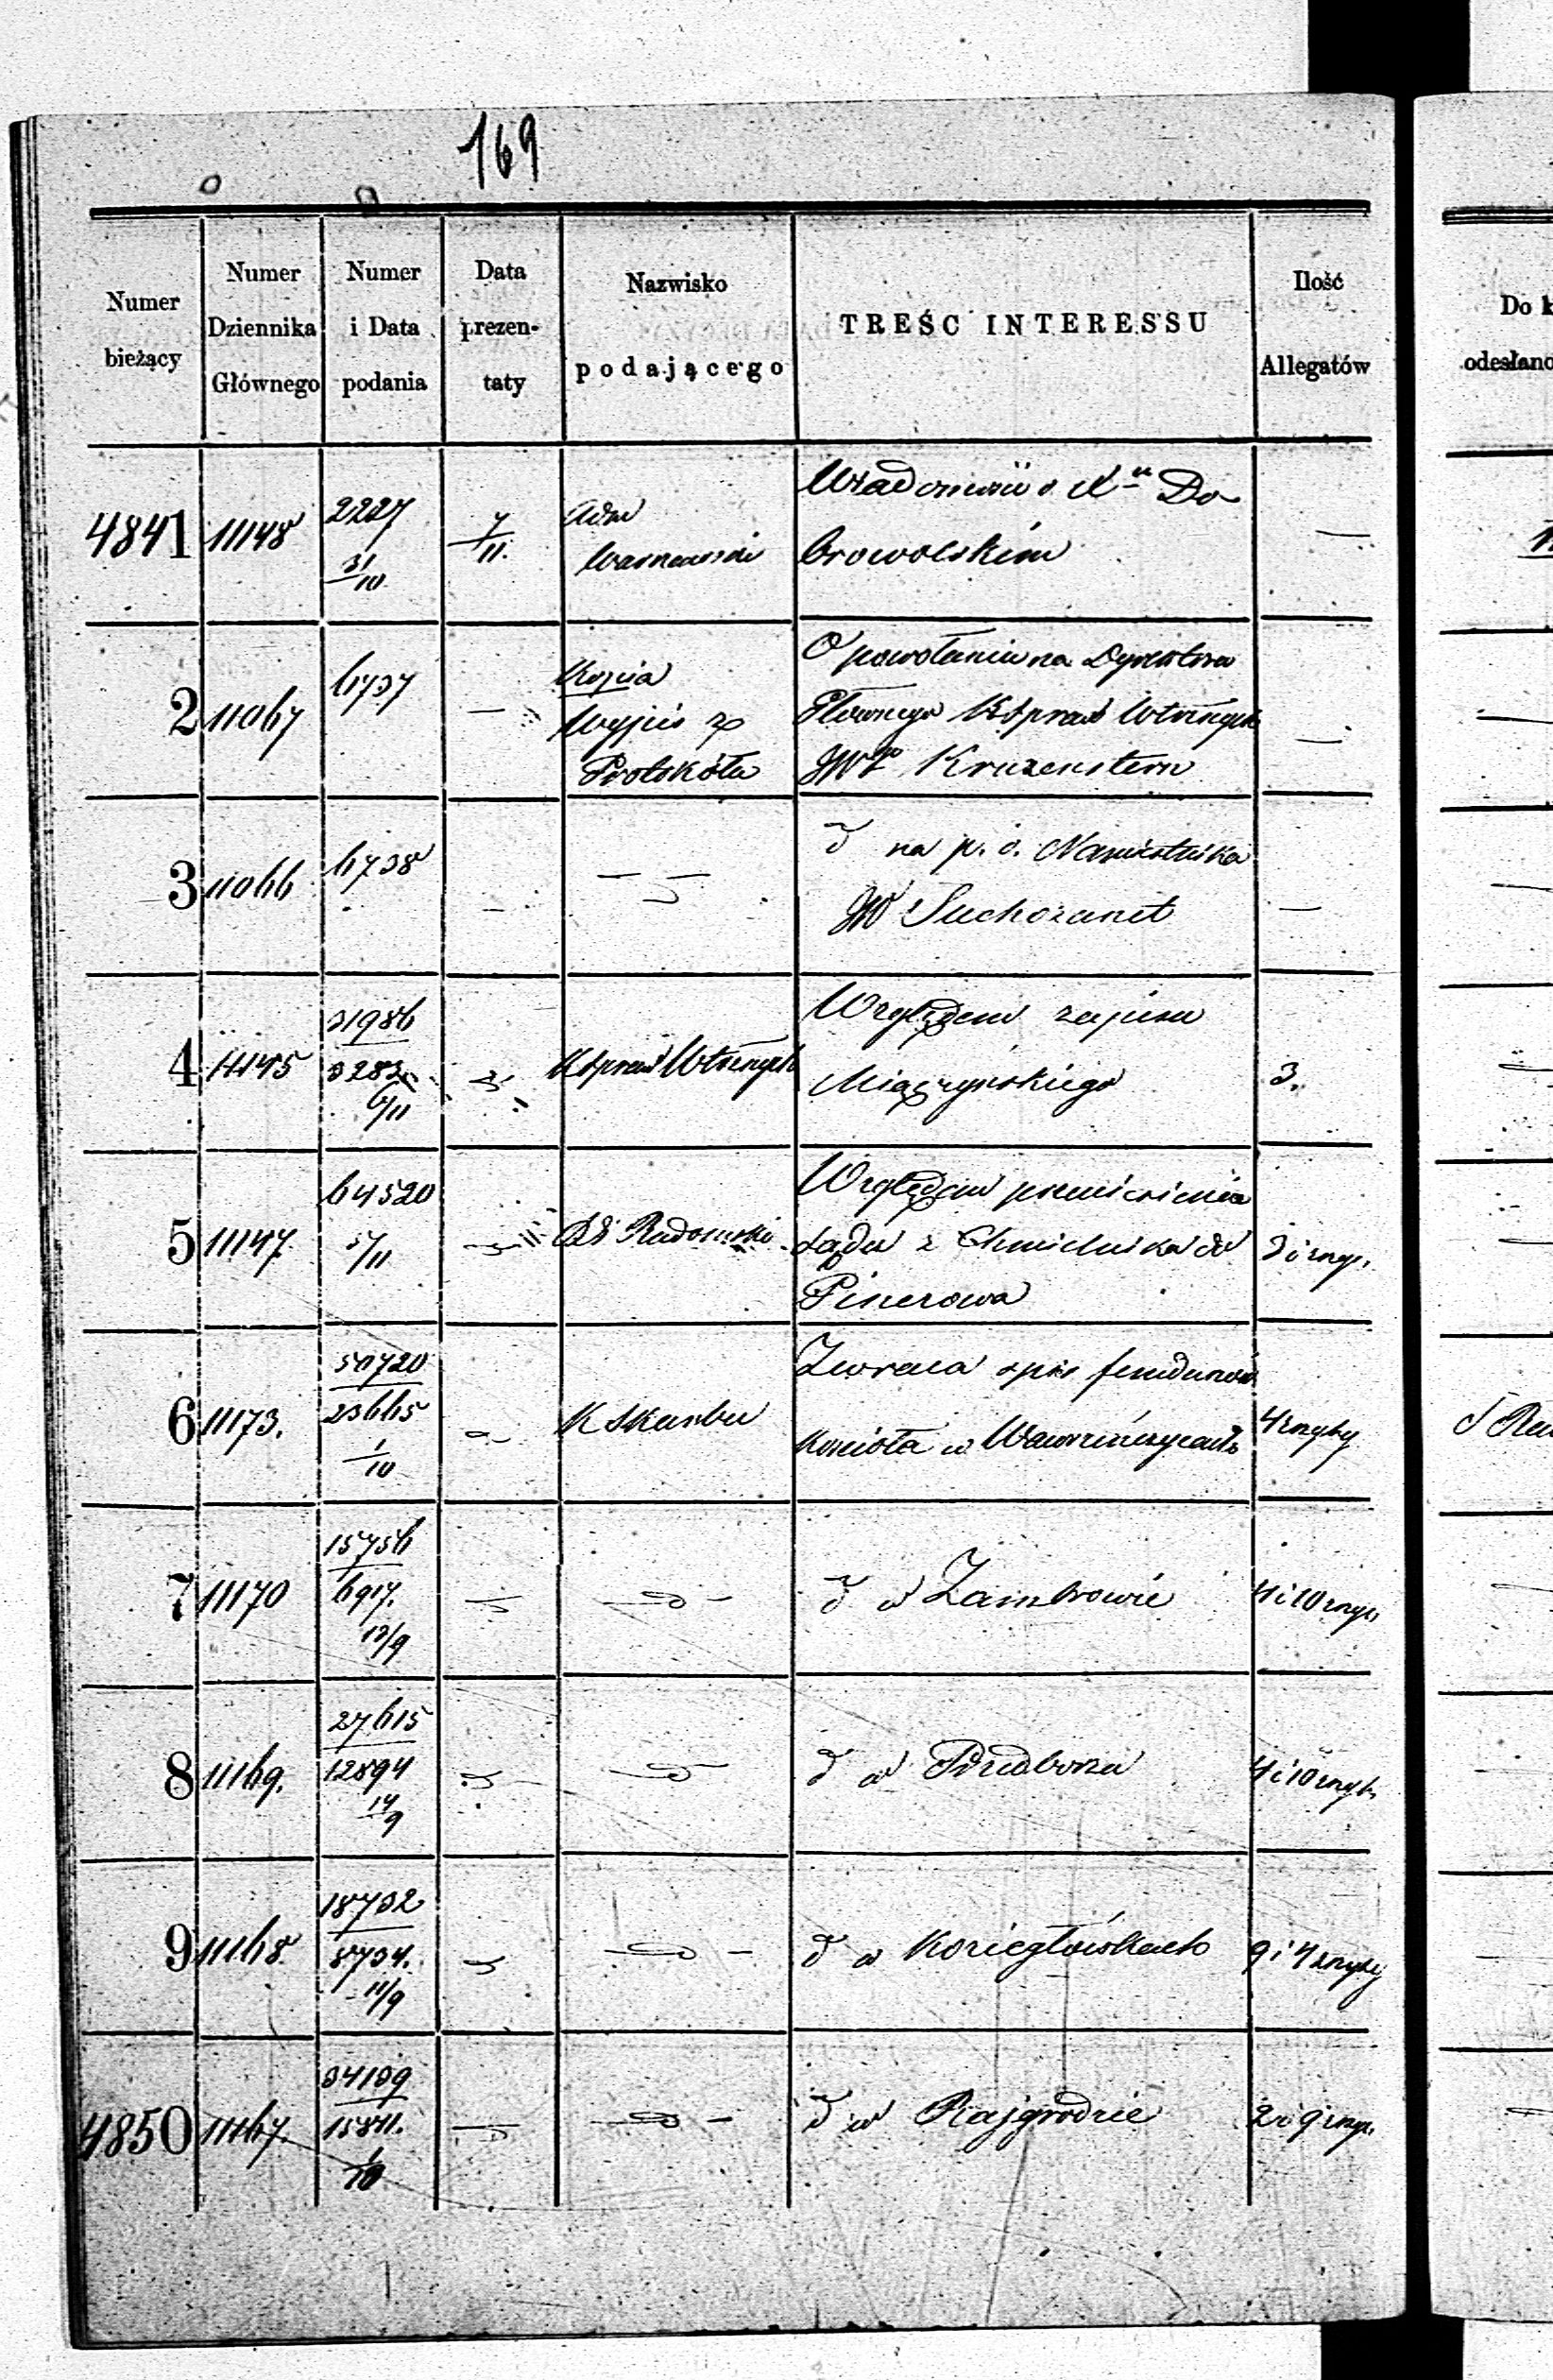 169
Numer bieżący | Numer Dziennika Głównego | Numer i Data podania | Data prezen-taty | Nazwisko podającego | TREŚĆ INTERESSU | Ilość Allegatów
4841 | 11148 | 2227 31/10 | 7/11. | Adm | o Xu Do
browolskim | —
2 | 11067 | 6737 | — | Kopia
Wypis z
Protokółu | O powołaniu na Dyrektora
Głównego KSpraw Wtrznych
JW Kruzenstern | —
3 | 11066 | 6738 | — | — " — | d na p. o. Namiestnika
JW Suchozanet | —
4 | 11145 | 31986 3283 6/11 | " | KSpraw Wtrznych | Względem zapisu
Miączyńskiego | 3.
5 | 11147. | 64520 5/11 | " | RG Radomski | Względem przeniesienia
Sądu z Chmielnika do
Pinczowa | 3 i zszyt.
6 | 11173. | 50720 23665 1/10 | " | K Skarbu | Zwraca spis funduszów
kościoła w Wawrzeńczycach | 4 zszyty
7 | 11170 | 15756 6917. 13/9 | " | — d — | d w Zambrowie | 4 i 10 zszyt.
8 | 11169. | 27615 12894 14/9 | " | — d — | d w Przedborzu | 4 i 10 zszyt.
9 | 11168. | 18732 8734. 11/9 | " | — d — | d w Koziegłówkach | 9 i 4 zszyty
4850 | 11167. | 34139 15841. 1/10 | " | — d — | d w Rajgrodzie | 2 i 9 zszyt.
Do k
odesłano